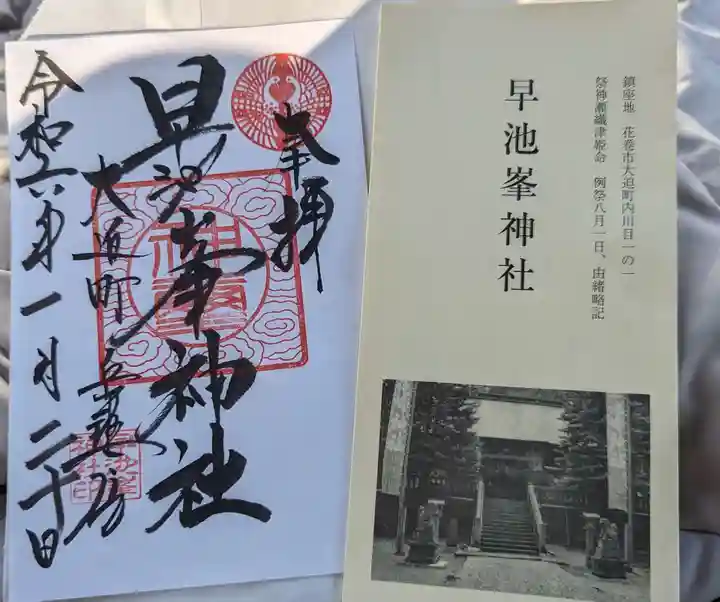 奉拝
早池峯神社
大迫町
令和六年一月二十日
鎮座地 花巻市大迫町内川目一の一
祭神瀬織津姫命 例祭八月一日、由緒略記
早池峯神社